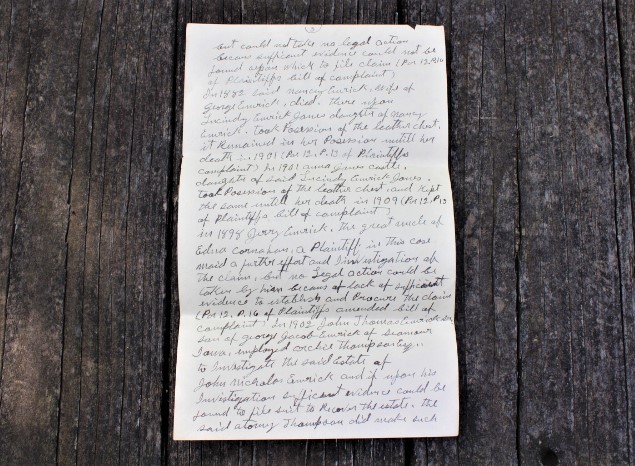 but could not take no legal action
becaus sufficant evidence could not be
found upon which to file claim (Par 12, P.16
of Plaintiffs bill of complaint)
In 1882 Said Nancy Emrick, wife of
George Emrick, died. there upon
Lucindy Emrick Jones daughter of Nancy
Emrick. took Posession of the leather chest,
it Remained in her Posession untill her
death in 1901 (Par 12, P.13 of Plaintiffs
complaint) In 1901 anna Jones
daughter of said Lucindy Emrick Jones.
took Posession of the leather chest, and Kept
the same untill her death in 1909 (Par 12. P.13
of Plaintiffs bill of complaint)
in 1898 Jerry Emrick, the great uncle of
Edna Cornahan, a Plaintiff in this case
maid a further effort and Investigation of
the claim, but no Legal action could be
taken by him becaus of lack of sufficant
evidence to establish and Procure the claim
(Par 12. P.16 of Plaintiffs amended bill of
complaint) In 1902 John Thomas Emrick
son of george Jacob Emrick of Seamour
Iowa, employed archie Thompson
to Investigate the said Estate of
John Nicholas Emrick and if upon his
Investigation sufficant evidence could be
found to file suit to Recover the estate. the
said atorny Thompson did make such